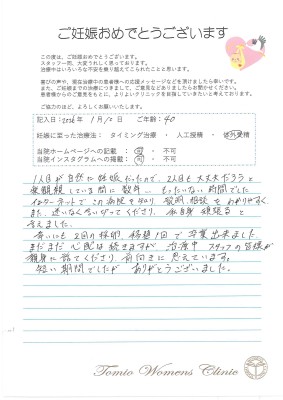 ご妊娠おめでとうございます
この度は、ご妊娠おめでとうございます。
スタッフ一同、大変うれしく思っております。
治療中はいろいろな不安を乗り越えてこられたことと思います。
喜びの声や、現在治療中の患者様への応援メッセージなどを頂けましたら幸いです。
また、これまでの治療につきまして、ご意見などありましたらお聞かせください。
患者様からのご意見をもとに、よりよいクリニックを目指していきたいと考えております。
ご協力のほど、よろしくお願いいたします。
記入日:2026年 1月10日 ご年齢:40
妊娠に至った治療法: タイミング治療 ・ 人工授精 ・ 体外受精
当院ホームページへの記載 : 可 ・ 不可
当院インスタグラムへの掲載 : 可 ・ 不可
1人目が自然に妊娠だったので、2人目も大丈夫だろうと
間に数年、もったいない時間でした
インターネットでこの病院を知り、説明、相談もわかりやすく、
また、迷いなく言い切ってくださり、私自身頑張ると
言えました。
幸いにも2回の採卵、移植1回で卒業出来ました。
まだまだ心配は続きますが、治療中スタッフの皆様が
親身に話てくださり、前向きに思えています。
短い期間でしたがありがとうございました。
Tomio Womens Clinic